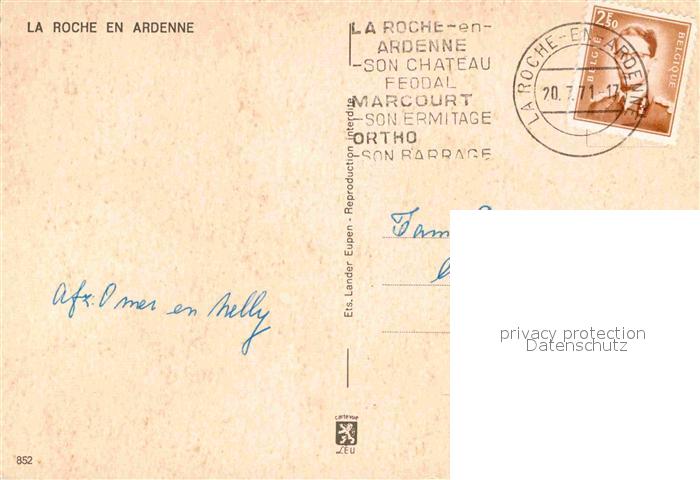 LA ROCHE EN ARDENNE
LA ROCHE-en-
ARDENNE
-SON CHATEAU
FEODAL
MARCOURT
-SON ERMITAGE
ORTHO
-SON BARRAGE
LA ROCHE-EN-ARDENNE
20.7.71-17
2F50
BELGIE BELGIQUE
Ets. Lander Eupen - Reproduction interdite
Fam
Afz. Omer en Nelly
privacy protection
Datenschutz
cartevue
LEU
852